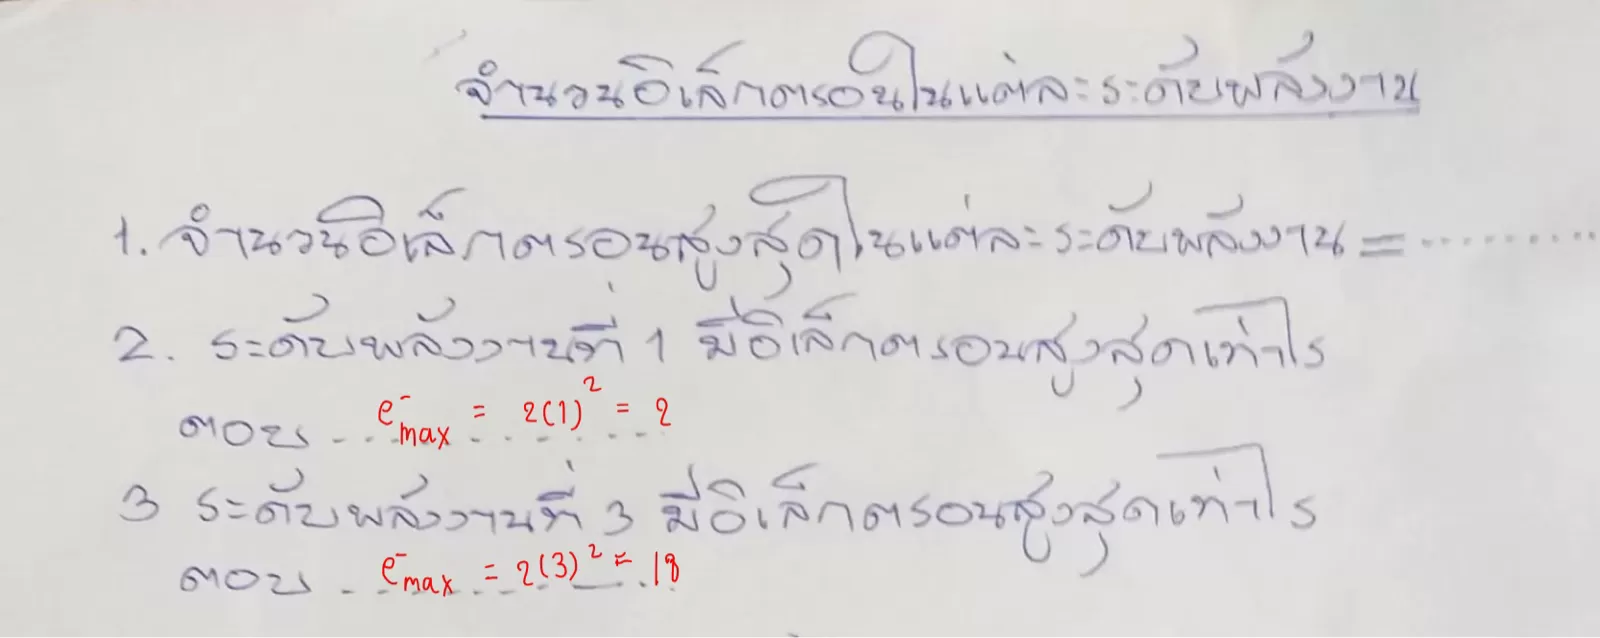 จำนวนอิเล็กตรอนในแต่ละระดับพลังงาน
1. จำนวนอิเล็กตรอนสูงสุดในแต่ละระดับพลังงาน = ..........
2. ระดับพลังงานที่ 1 มีอิเล็กตรอนสูงสุดเท่าไร
ตอบ e⁻max = 2(1)² = 2
3 ระดับพลังงานที่ 3 มีอิเล็กตรอนสูงสุดเท่าไร
ตอบ e⁻max = 2(3)² = 18